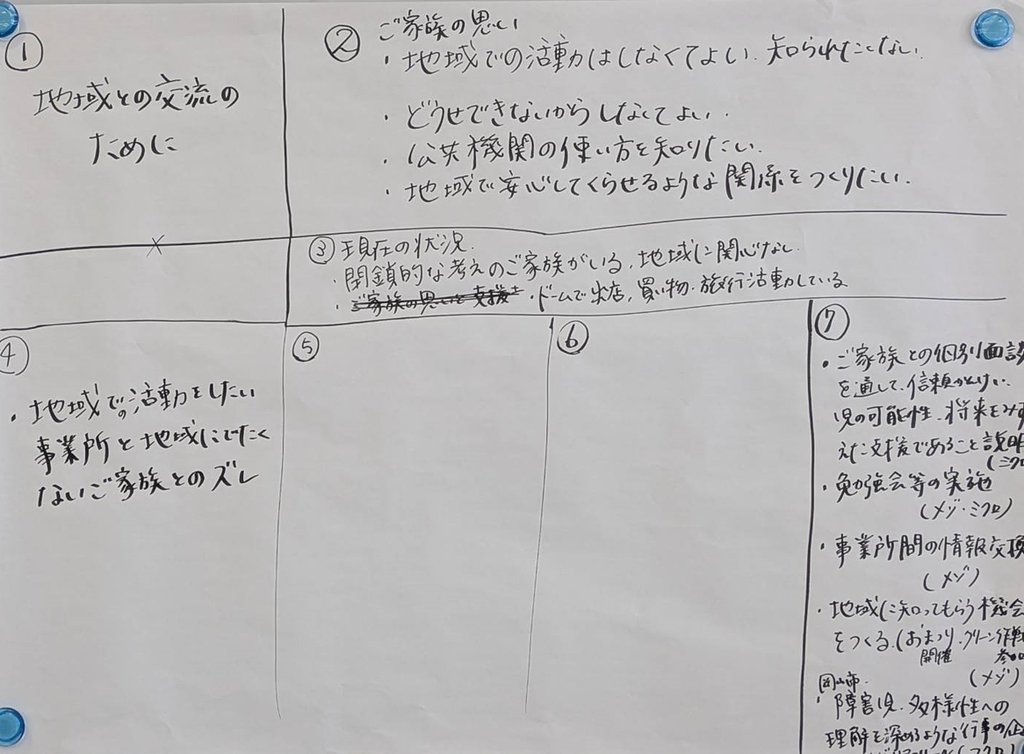 ①
地域との交流の
ために
② ご家族の思い
・地域での活動はしなくてよい、知られたくない
・どうせできないからしなくてよい。
・公共機関の使い方を知りたい。
・地域で安心してくらせるような関係をつくりたい。
③ 現在の状況
・閉鎖的な考えのご家族がいる、地域に関心ない
・ご家族の思いと支援 ・ドームで出店、買い物、旅行活動している
④
・地域での活動をしたい
事業所と地域にでたく
ないご家族とのズレ
⑤
⑥
⑦
・ご家族との個別面談
を通して、信頼かんけい
児の可能性、将来をみす
えた支援であること説明
(ミクロ
・勉強会等の実施
(メゾ・ミクロ)
・事業所間の情報交換
(メゾ)
・地域に知ってもらう機会
をつくる。(おまつり、クリーン作戦
開催 参加
(メゾ)
岡山市
・障害児、多様性への
理解を深めるような行事の企